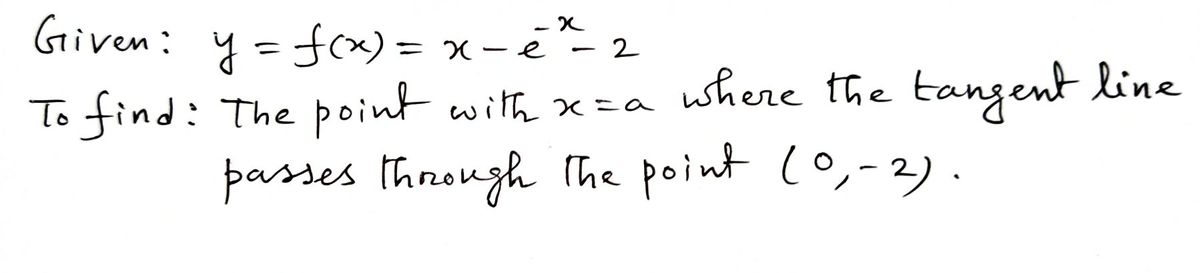 Given: y = f(x) = x - e^{-x} - 2
To find: The point with x = a where the tangent line
passes through the point (0, -2).